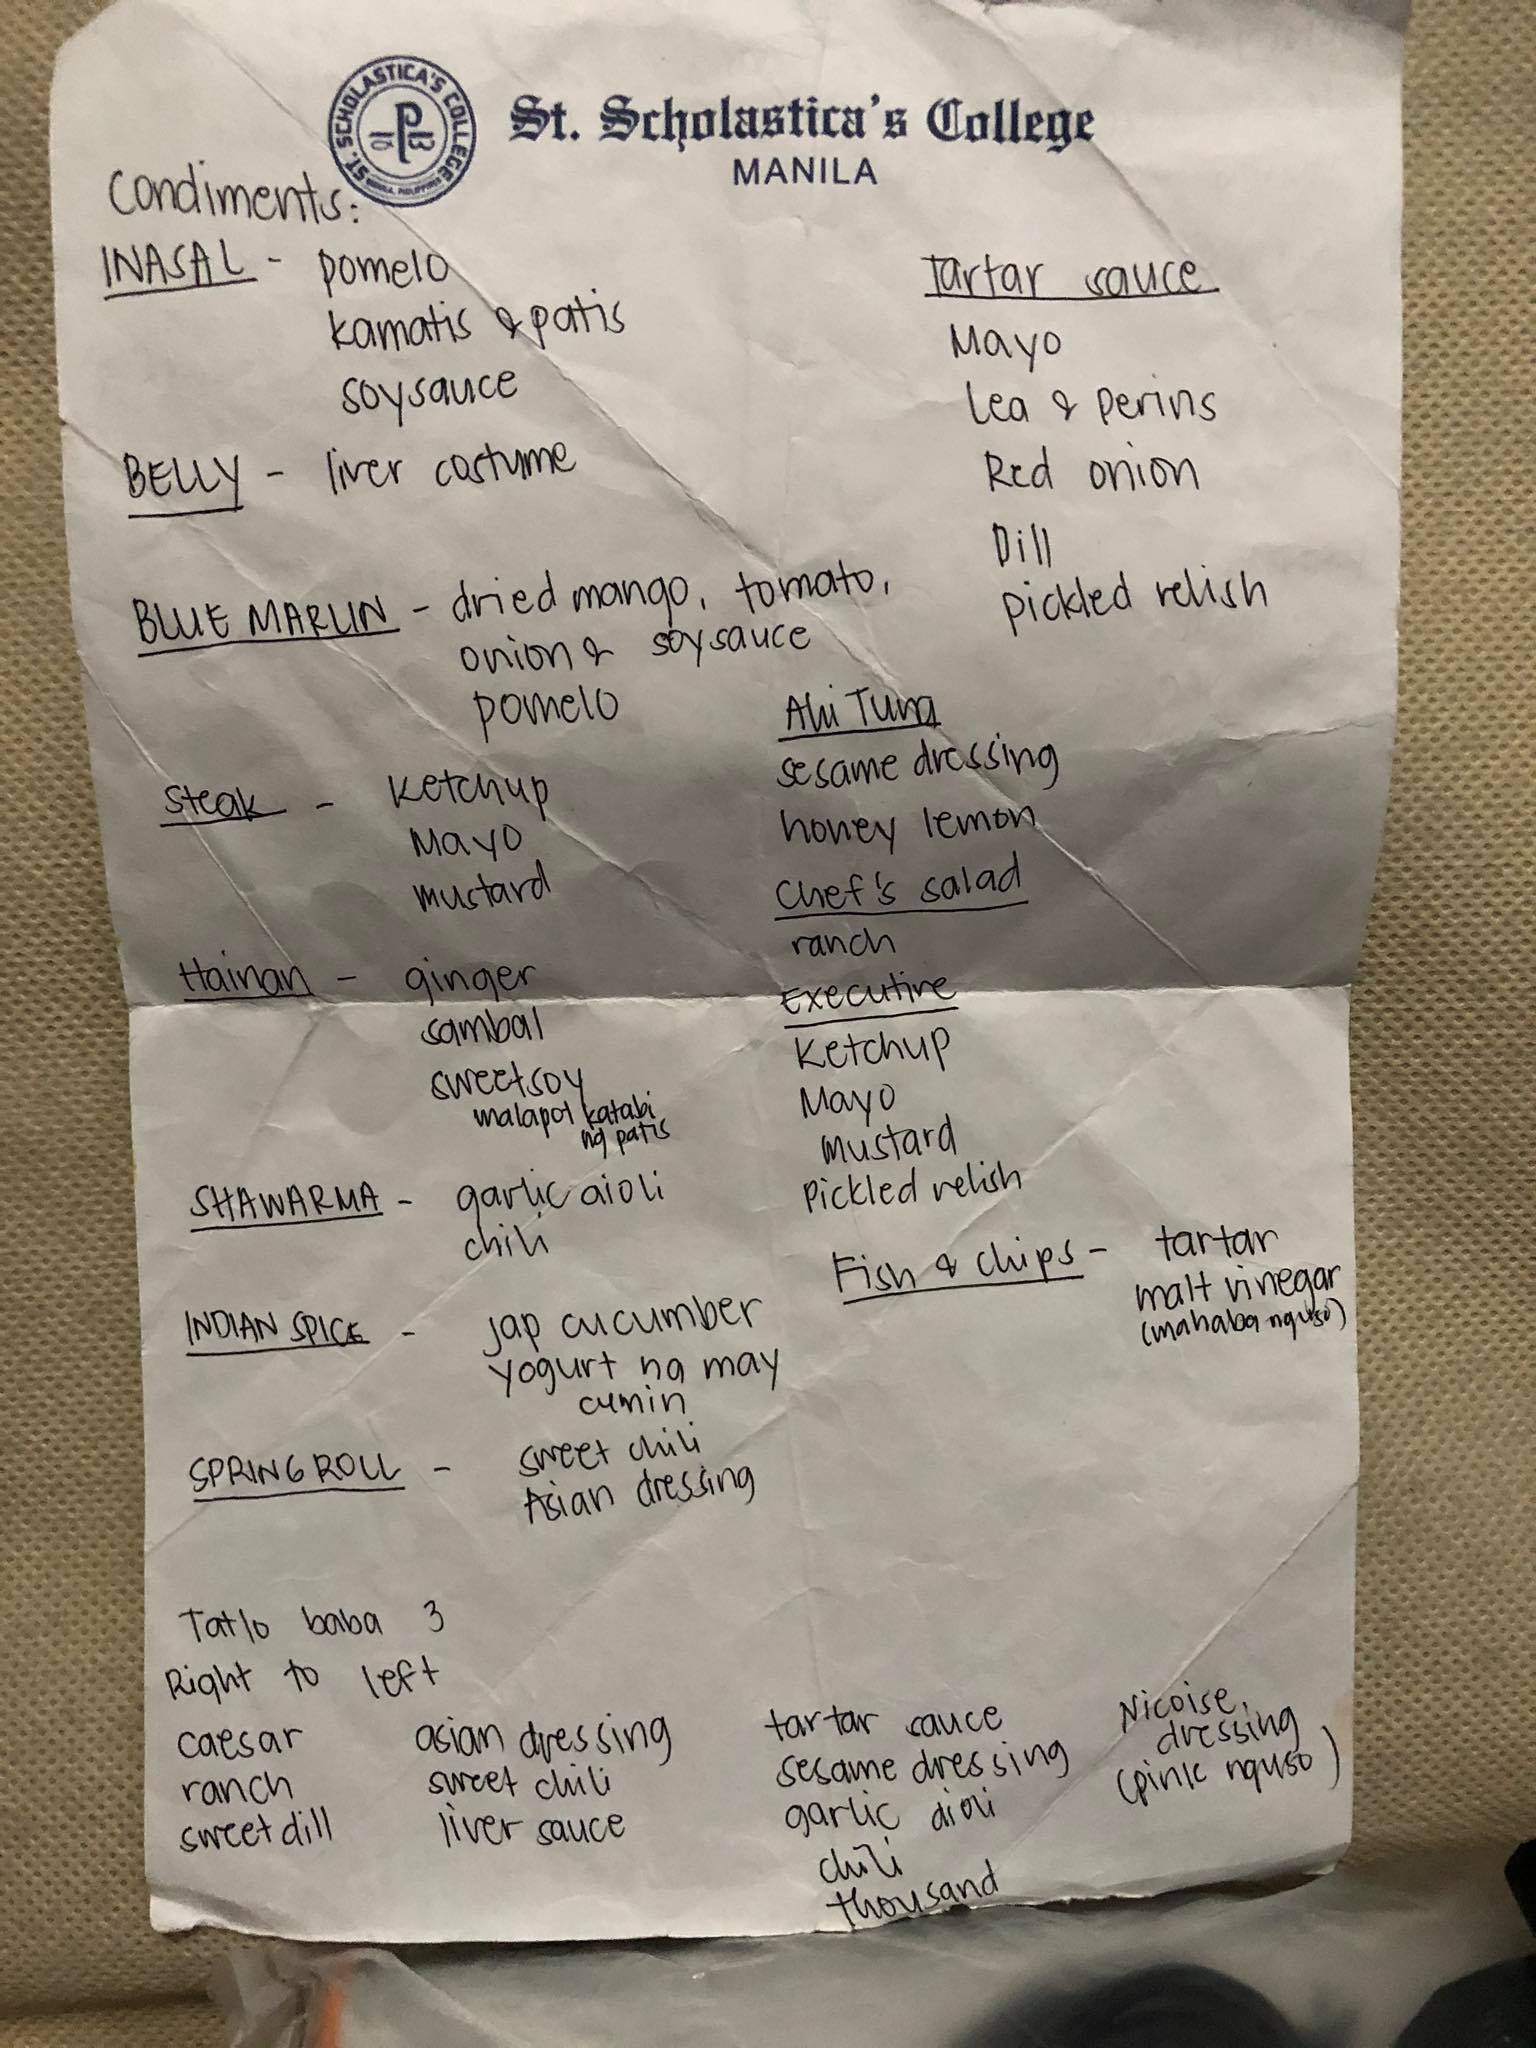 ST. SCHOLASTICA'S COLLEGE
MANILA, PHILIPPINES
St. Scholastica's College
MANILA
Condiments:
INASAL - pomelo
kamatis & patis
soysauce
BELLY - liver costume
BLUE MARLIN - dried mango, tomato,
onion & soysauce
pomelo
Steak - Ketchup
Mayo
mustard
Hainan - ginger
sambal
sweetsoy
malapot katabi
ng patis
SHAWARMA - garlic aioli
chili
INDIAN SPICE - jap cucumber
yogurt na may
cumin
SPRING ROLL - sweet chili
Asian dressing
Tartar sauce
Mayo
Lea & perins
Red onion
Dill
pickled relish
Ahi Tuna
sesame dressing
honey lemon
Chef's salad
ranch
Executive
Ketchup
Mayo
mustard
Pickled relish
Fish & chips - tartar
malt vinegar
(mahaba nguso)
Tatlo baba 3
Right to left
caesar
ranch
sweet dill
asian dressing
sweet chili
liver sauce
tartar sauce
sesame dressing
garlic aioli
chili
thousand
Nicoise
dressing
(pink nguso)